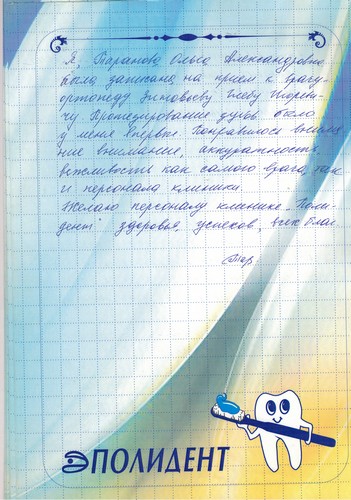 Я, Таранова Ольга Александровна
была записана на прием к врачу-
ортопеду Зиновьеву Глебу Игореви-
чу. Протезирование зубов было
у меня впервые. Понравилось внима
ние внимание, аккуратность,
вежливость как самого врача, так
и персонала клиники.
Желаю персоналу клинике „Поли-
дент" здоровья, успехов, всех благ.
ПОЛИДЕНТ